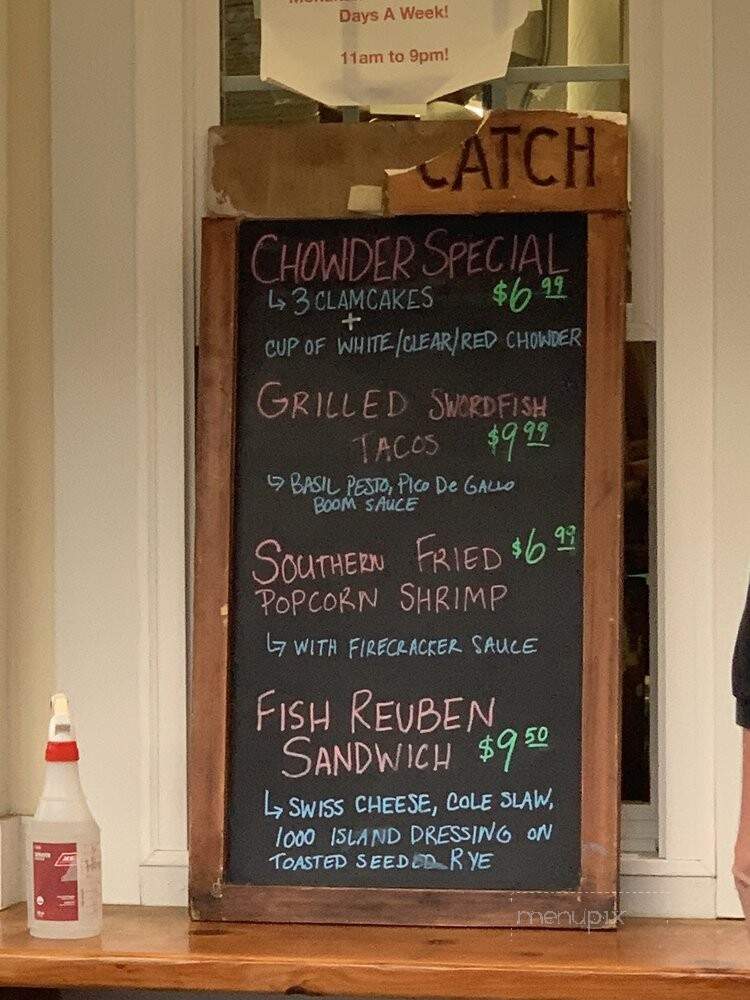 Days A Week!
11am to 9pm!
CATCH
CHOWDER SPECIAL
↳ 3 CLAMCAKES $6 99
+
CUP OF WHITE/CLEAR/RED CHOWDER
GRILLED SWORDFISH
TACOS $9 99
↳ BASIL PESTO, PICO De GALLO
BOOM SAUCE
SOUTHERN FRIED $6 99
POPCORN SHRIMP
↳ WITH FIRECRACKER SAUCE
FISH REUBEN
SANDWICH $9 50
↳ SWISS CHEESE, COLE SLAW,
1000 ISLAND DRESSING ON
TOASTED SEEDED RYE
menupix